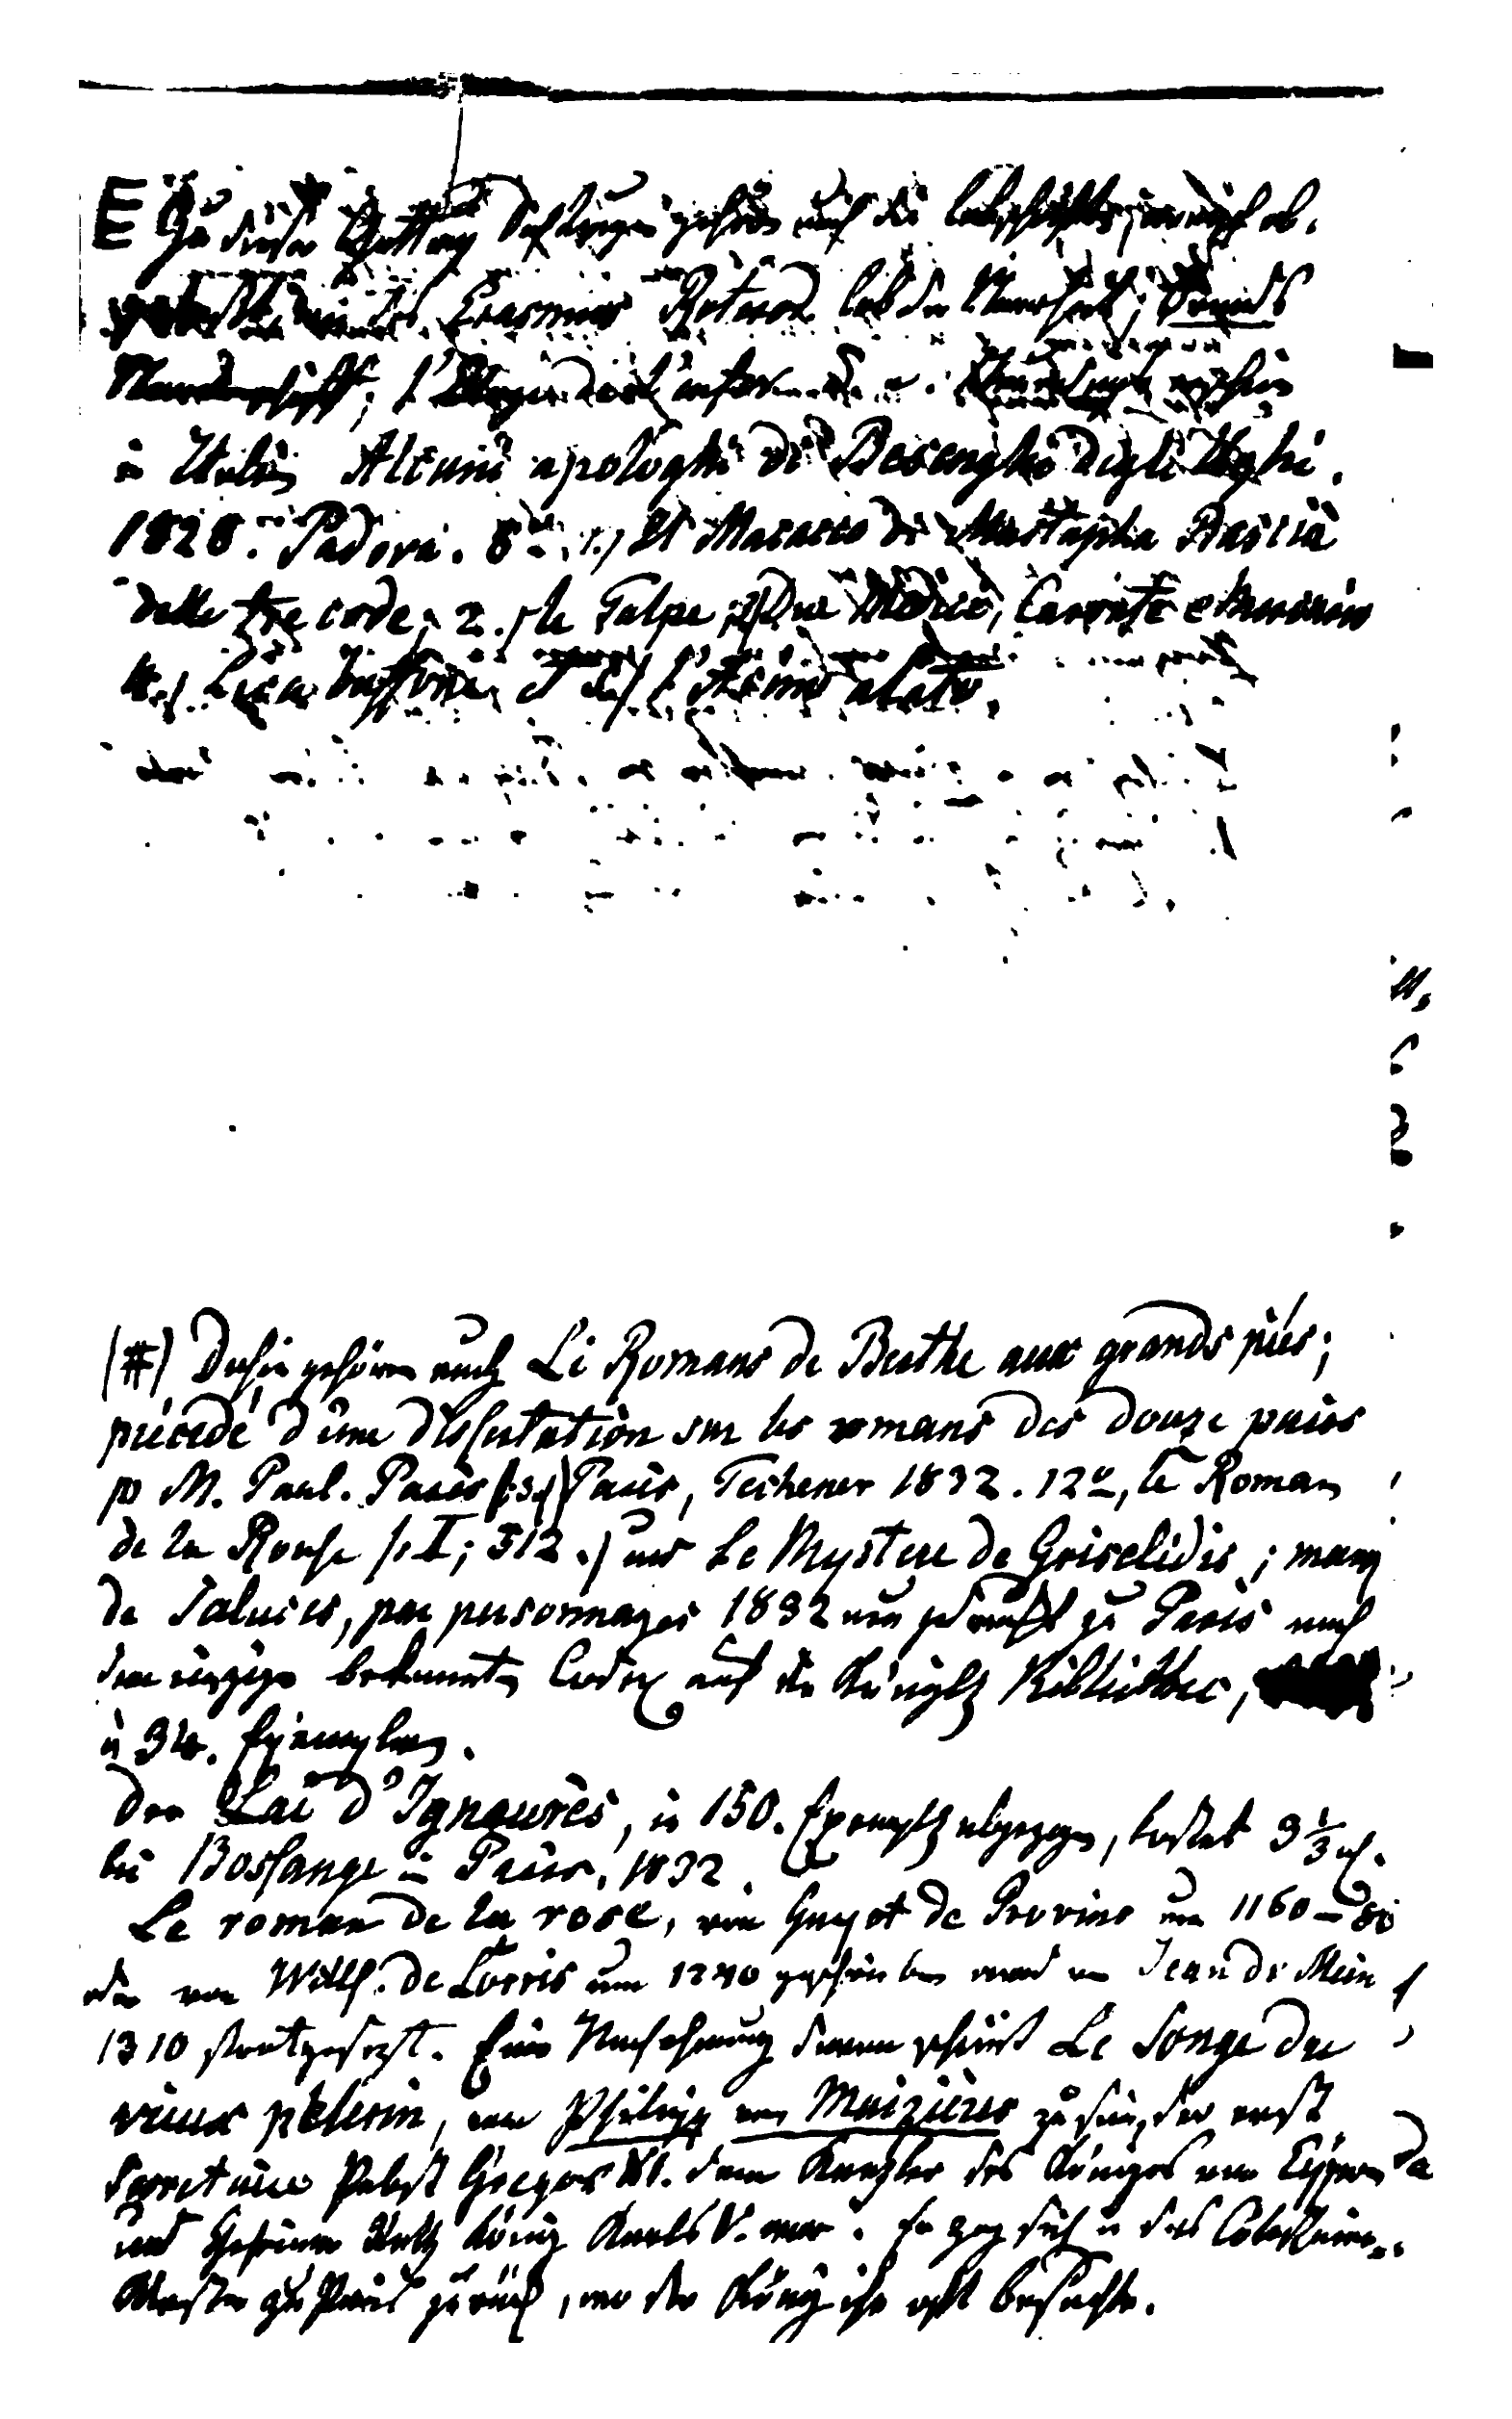 E Zu dieser Gattung Dichtungen gehören auch die
Erasmus Roterod. Lob der Narrheit; Brands
Narrenschiff; l'
in Italien Alcuni apologhi di Besenghi degli Ughi.
1828. Padova. 8º. 1.) Il Macacco di Mustapha Bascià
delle tre code; 2.) le Talpe; 3) Due Medici, Caronte e Mercurio
4.) Licia l'Asino alato.
(#) Dahin gehören auch Li Romans de Berthe aux grands piés;
précédé d'une dissertation sur les romans des douze pairs
p M. Paul. Paris Paris, Techener 1832. 12º, le Roman
de la Rouse 512.) und Le Mystere de Griselidis; marq
de Saluces, par personnages 1832 neu gedruckt zu Paris nach
dem einzigen bekannten Codex auf der Königl. Bibliothec,
in 34. Exemplaren.
Der Lai d'Ignaurès, in 150. Exempl abgezogen, kostet 3⅓
bei Bossange in Paris, 1832.
Le roman de la rose, von Guyot de Provins um 1160–80
oder von Wilh. de Lorris um 1240 geschrieben ward von Jean de Meun
1310 fortgesezt. Eine Nachahmung davon scheint Le Songe du
vieux pelerin, von Philipp von Maizieres zu sein, der erst
Secretaire Pabst Gregor XI. dann Kanzler des Königes von Cypern
und Geheimer Rath König Karls V. war. Er zog sich in das Cölestiner-
Kloster zu Paris zurück, wo der König ihn oft besuchte.